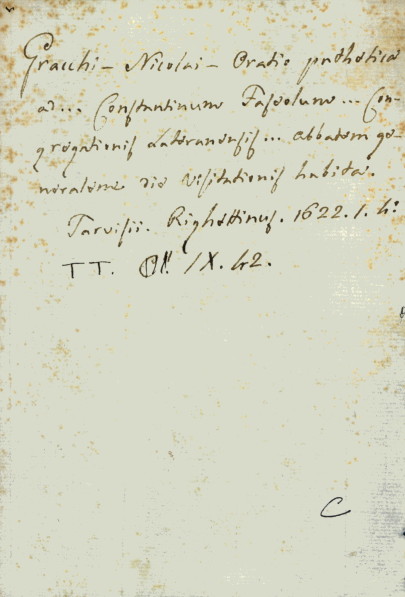 Gracchi - Nicolai - Oratio prothetica
ad ... Constantinum Faseolum ... Con-
gregationis Lateranensis ... abbatem ge-
neralem die visitationis habita.
Tarvisii. Righettinus. 1622. 1. 4:
TT. IX. 42.
C